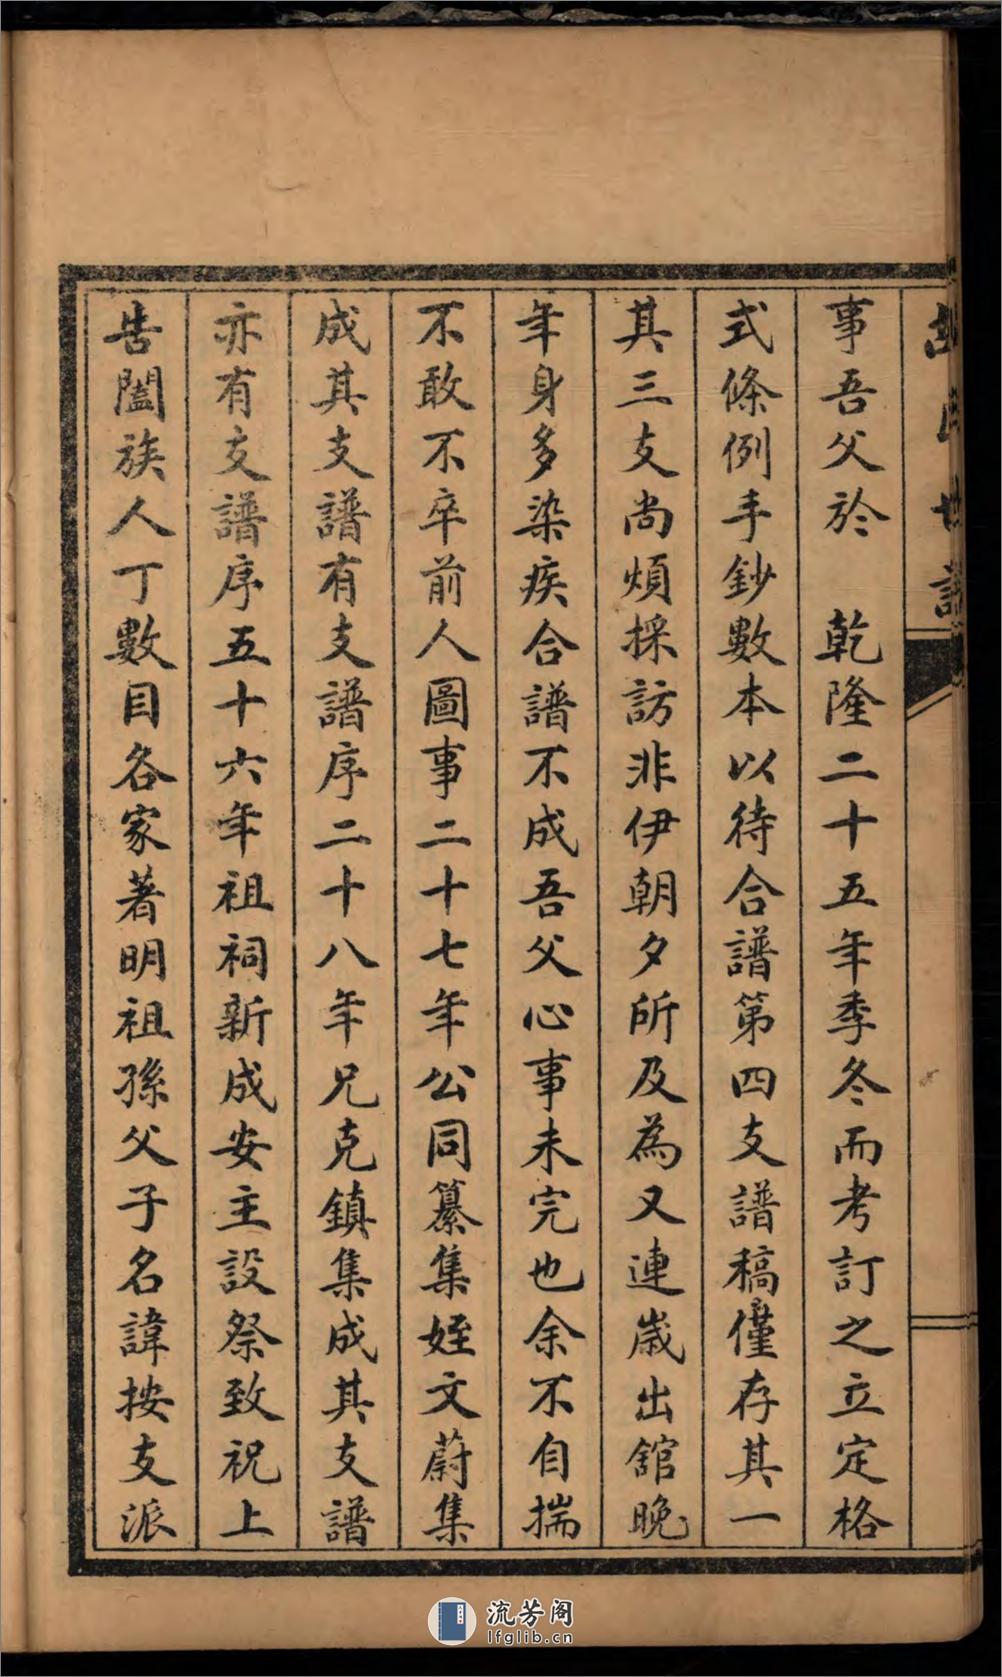 世譜
事吾父於　乾隆二十五年季冬而考訂之立定格
式條例手鈔數本以待合譜第四支譜稿僅存其一
其三支尚煩採訪非伊朝夕所及為又連歲出館晚
年身多染疾合譜不成吾父心事未完也余不自揣
不敢不卒前人圖事二十七年公同纂集姪文蔚集
成其支譜有支譜序二十八年兄克鎮集成其支譜
亦有支譜序五十六年祖祠新成安主設祭致祝上
告闔族人丁數目各家著明祖孫父子名諱按支派
流芳阁
lfglib.cn